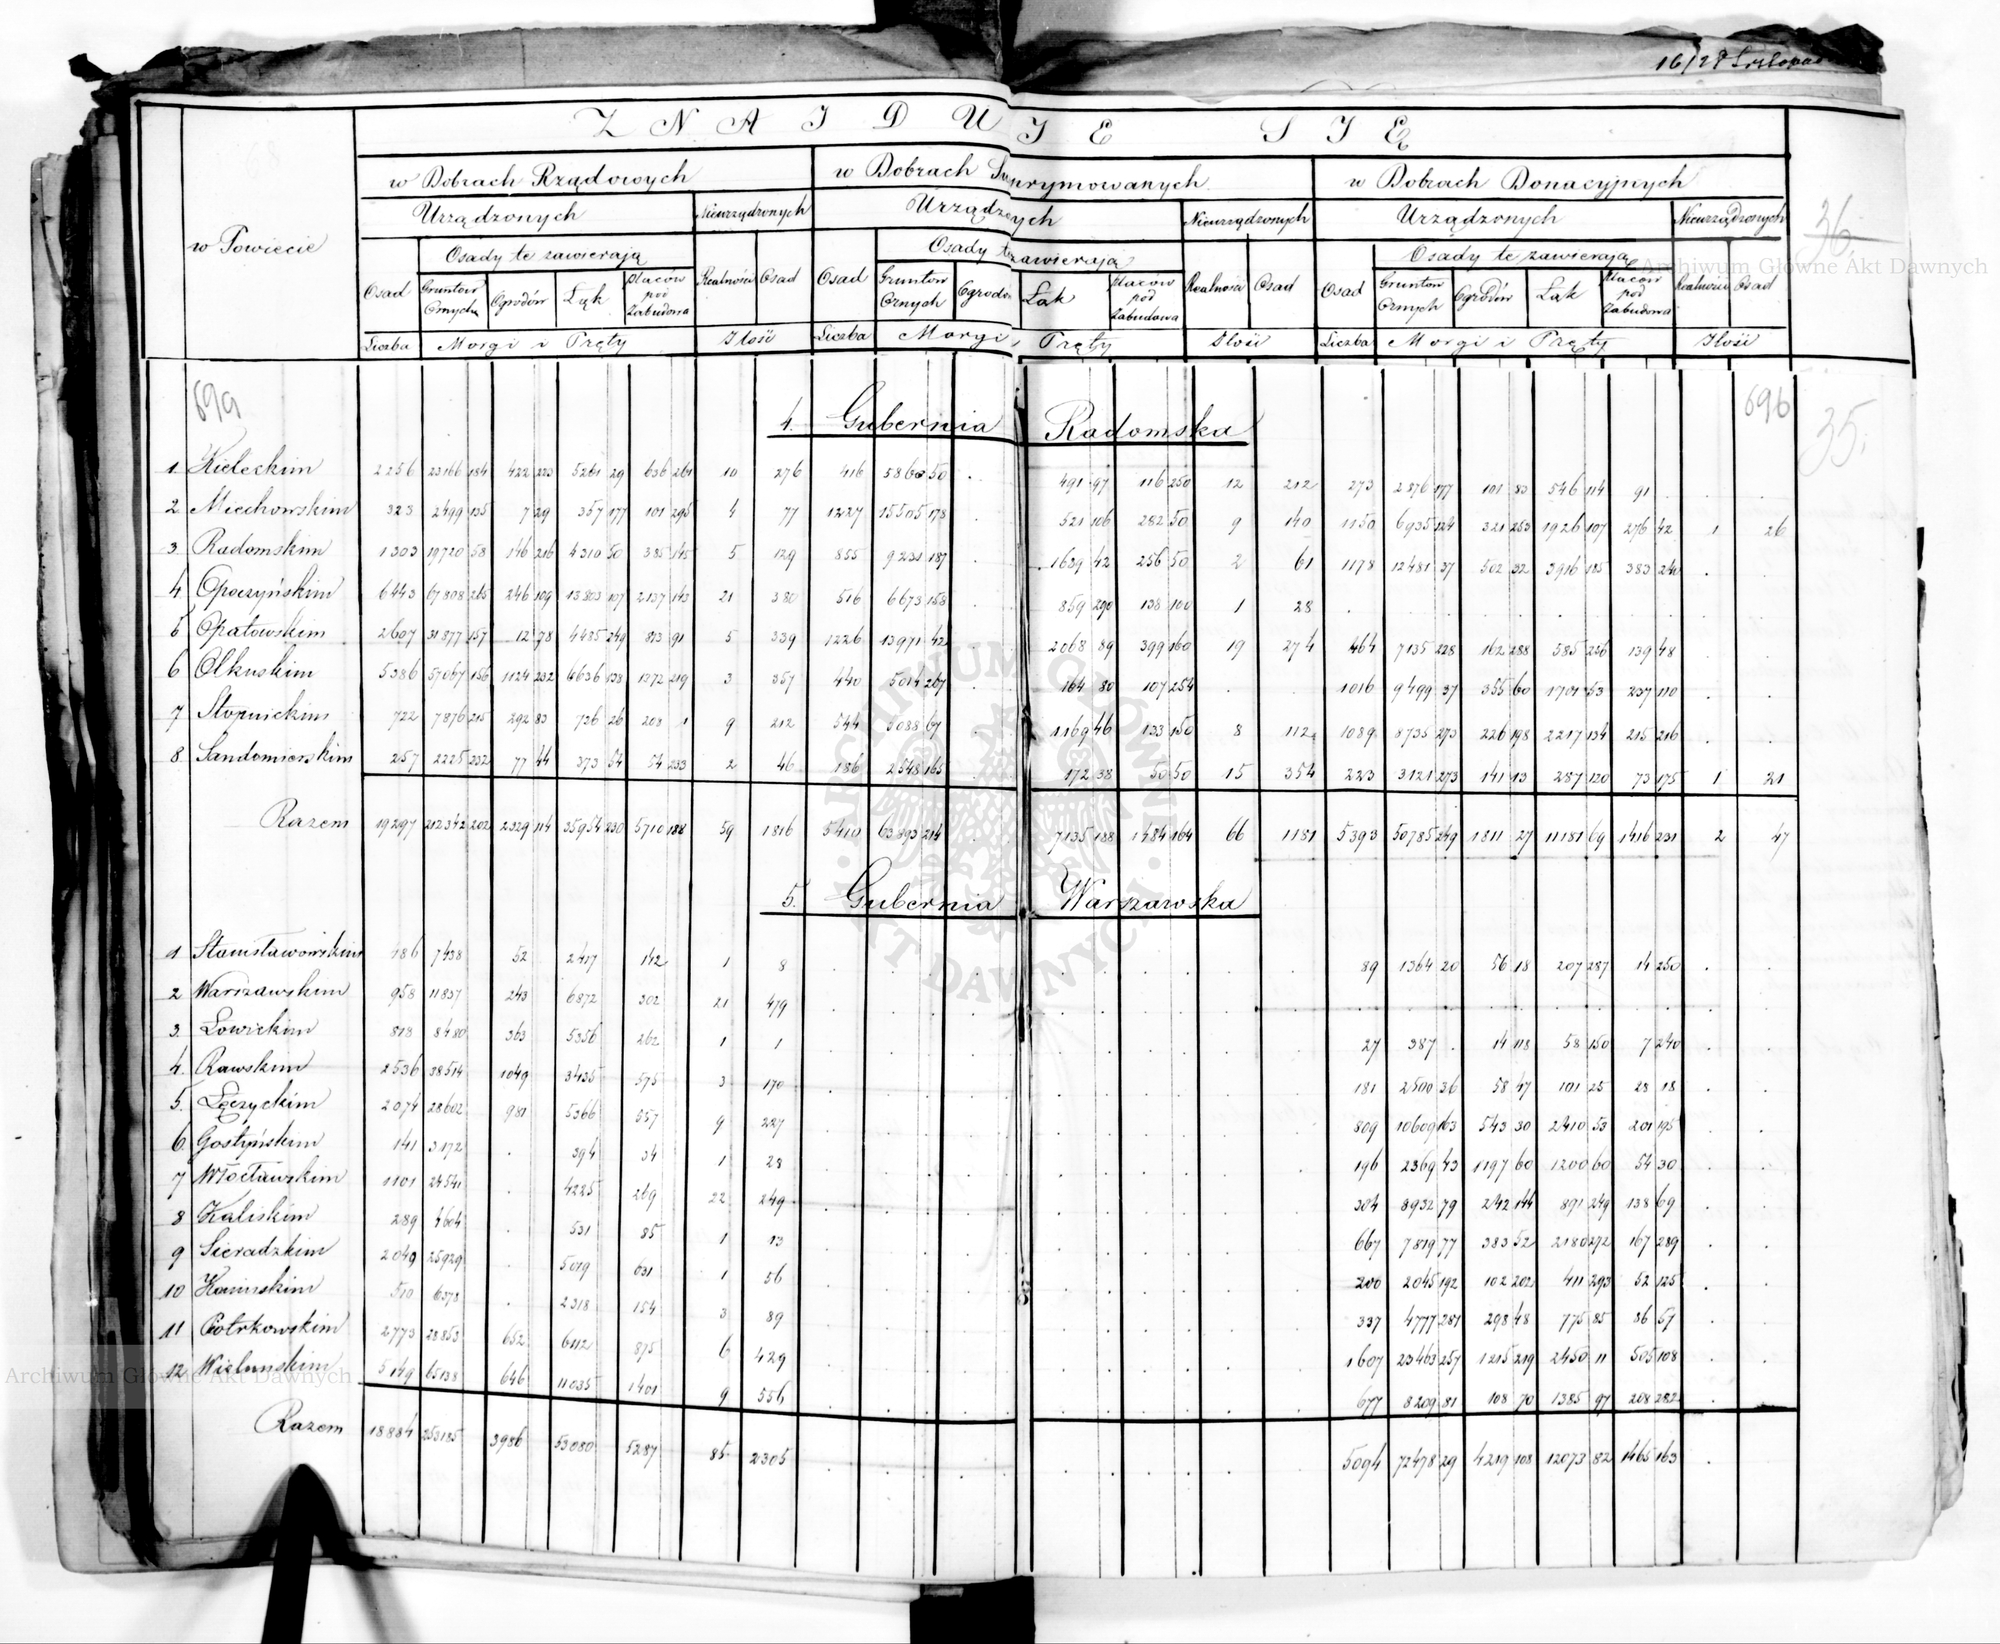 16/28 Listopad
Z N A J D U J E S I Ę
w Dobrach Rządowych w Dobrach Suprymowanych w Dobrach Donacyjnych
Urządzonych Nieurządzonych Urządzonych Nieurządzonych Urządzonych Nieurządzonych
36.
w Powiecie
Osady te zawierają Osady te zawierają Osady te zawierają
Osad Gruntów Ornych Ogrodów Łąk Placów pod Zabudową Realności Osad Osad Gruntów Ornych Ogrodów Łąk Placów pod Zabudową Realności Osad Osad Gruntów Ornych Ogrodów Łąk Placów pod Zabudową Realności Osad
Liczba Morgi i Pręty Ilość Liczba Morgi i Pręty Ilość Liczba Morgi i Pręty Ilość
69a 69b
35.
4. Gubernia Radomska
1. Kieleckim 2256 23166 184 422 223 5261 29 636 261 10 276 416 5863 50 . 491 97 116 250 12 212 273 2876 177 101 83 546 114 91 . . .
2. Miechowskim 323 2499 135 7 29 357 177 101 295 4 77 1227 15505 178 . 521 106 282 50 9 140 1150 6935 124 321 253 1926 107 276 42 1 26
3. Radomskim 1303 19720 58 146 216 4310 50 385 145 5 129 855 9231 187 . 1639 42 256 50 2 61 1178 12481 37 502 32 3916 185 383 240 . .
4. Opoczyńskim 6443 67808 265 246 109 13803 107 2137 143 21 380 516 6673 158 . 859 290 138 100 1 28 . . . . . . .
5 Opatowskim 2607 31877 157 12 78 4485 249 813 91 5 339 1226 13971 42 . 2068 89 399 160 19 274 464 7135 228 162 288 585 256 139 48 . .
6 Olkuskim 5386 57067 156 1124 232 6636 138 1272 219 3 357 440 5014 267 . 164 80 107 254 . . 1016 9499 37 355 60 1701 53 237 110 . .
7 Stopnickim 722 7876 215 292 83 726 26 208 1 9 212 544 5088 67 . 1169 46 133 150 8 112 1089 8735 273 226 198 2217 134 215 216 . .
8. Sandomierskim 257 2225 232 77 44 373 54 54 233 2 46 186 2548 165 . 172 38 50 50 15 354 223 3121 273 141 13 287 120 73 175 1 21
Razem 19297 212342 202 2329 114 35954 230 5710 188 59 1816 5410 63893 214 . 7135 188 1484 164 66 1181 5393 50785 249 1811 27 11181 69 1416 231 2 47
5. Gubernia Warszawska
1 Stanisławowskim 486 7438 52 2417 142 1 8 89 1364 20 56 18 207 287 14 250
2 Warszawskim 958 11837 243 6872 302 21 479
3. Łowickim 818 8480 363 5356 262 1 1 27 387 . 14 118 58 150 7 240
4. Rawskim 2536 38514 1049 3435 575 3 170 181 2500 36 58 47 101 25 28 18
5. Łęczyckim 2074 28602 981 5366 557 9 227 809 10609 163 543 30 2410 53 201 195
6. Gostyńskim 141 3172 . 394 34 1 28 196 2369 43 1197 60 1200 60 54 30
7 Włocławskim 1101 24541 . 4225 269 22 249 304 8932 79 242 144 891 249 138 69
8 Kaliskim 289 4604 . 531 85 1 13 667 7819 77 383 52 2180 292 167 289
9 Sieradzkim 2049 25929 . 5019 631 1 56 200 2045 192 102 202 411 293 52 125
10 Konińskim 510 6378 . 2318 154 3 89 337 4777 281 298 48 775 85 86 57
11 Piotrkowskim 2773 28853 652 6112 875 6 429 1607 23463 257 1215 219 2450 11 505 108
12. Wieluńskim 5149 65138 646 11035 1401 9 556 677 8209 81 108 70 1385 97 208 282
Razem 18884 253185 3986 53080 5287 85 2305 5094 72478 29 4219 108 12073 82 1465 163
Archiwum Główne Akt Dawnych
Archiwum Główne Akt Dawnych
ARCHIWUM GŁÓWNE · AKT DAWNYCH ·